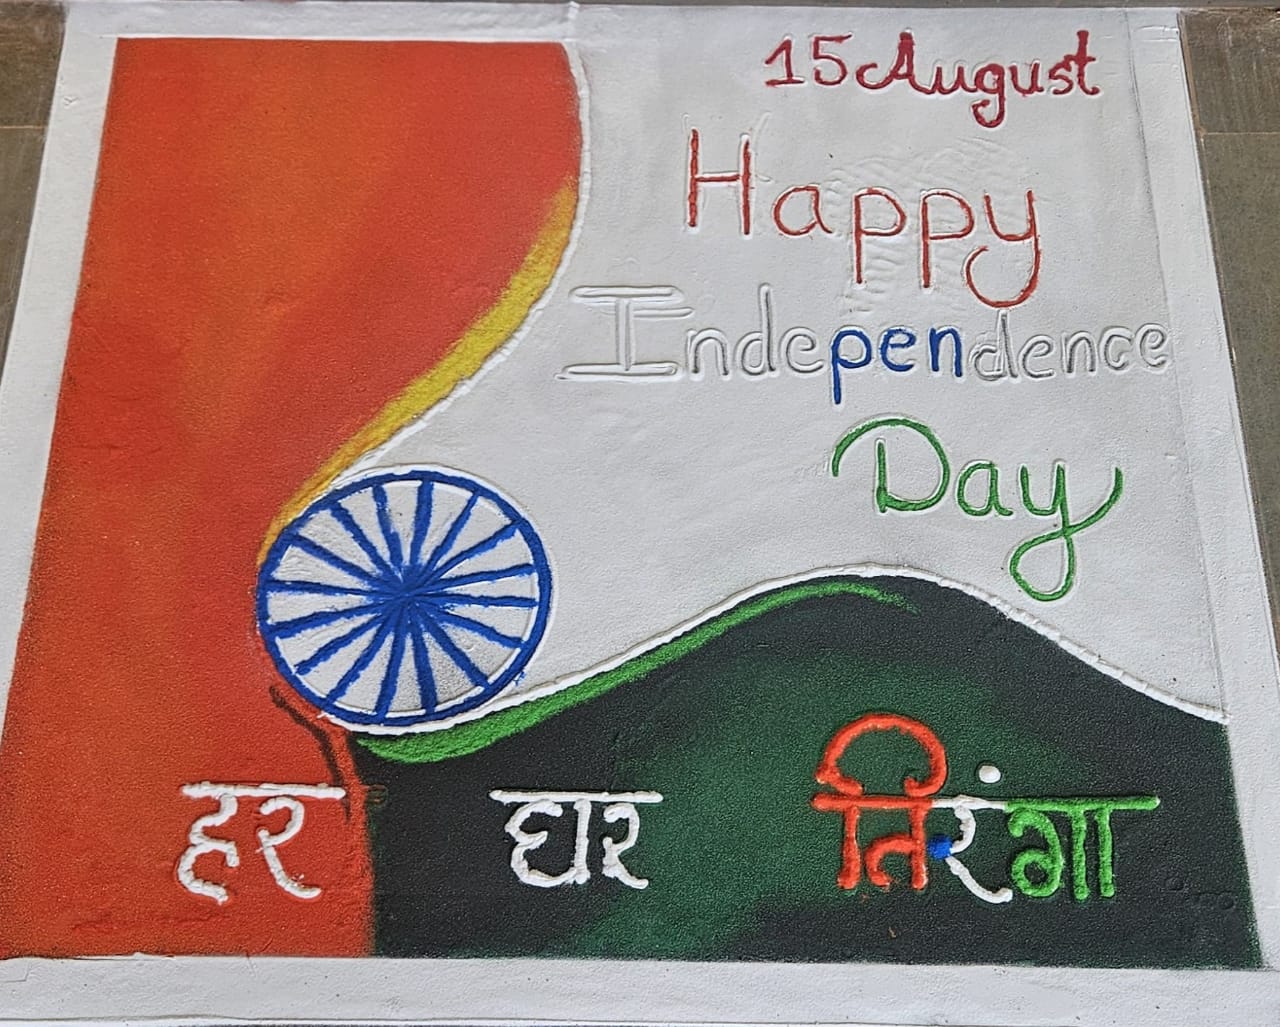 15 August
Happy
Independence
Day
हर घर तिरंगा